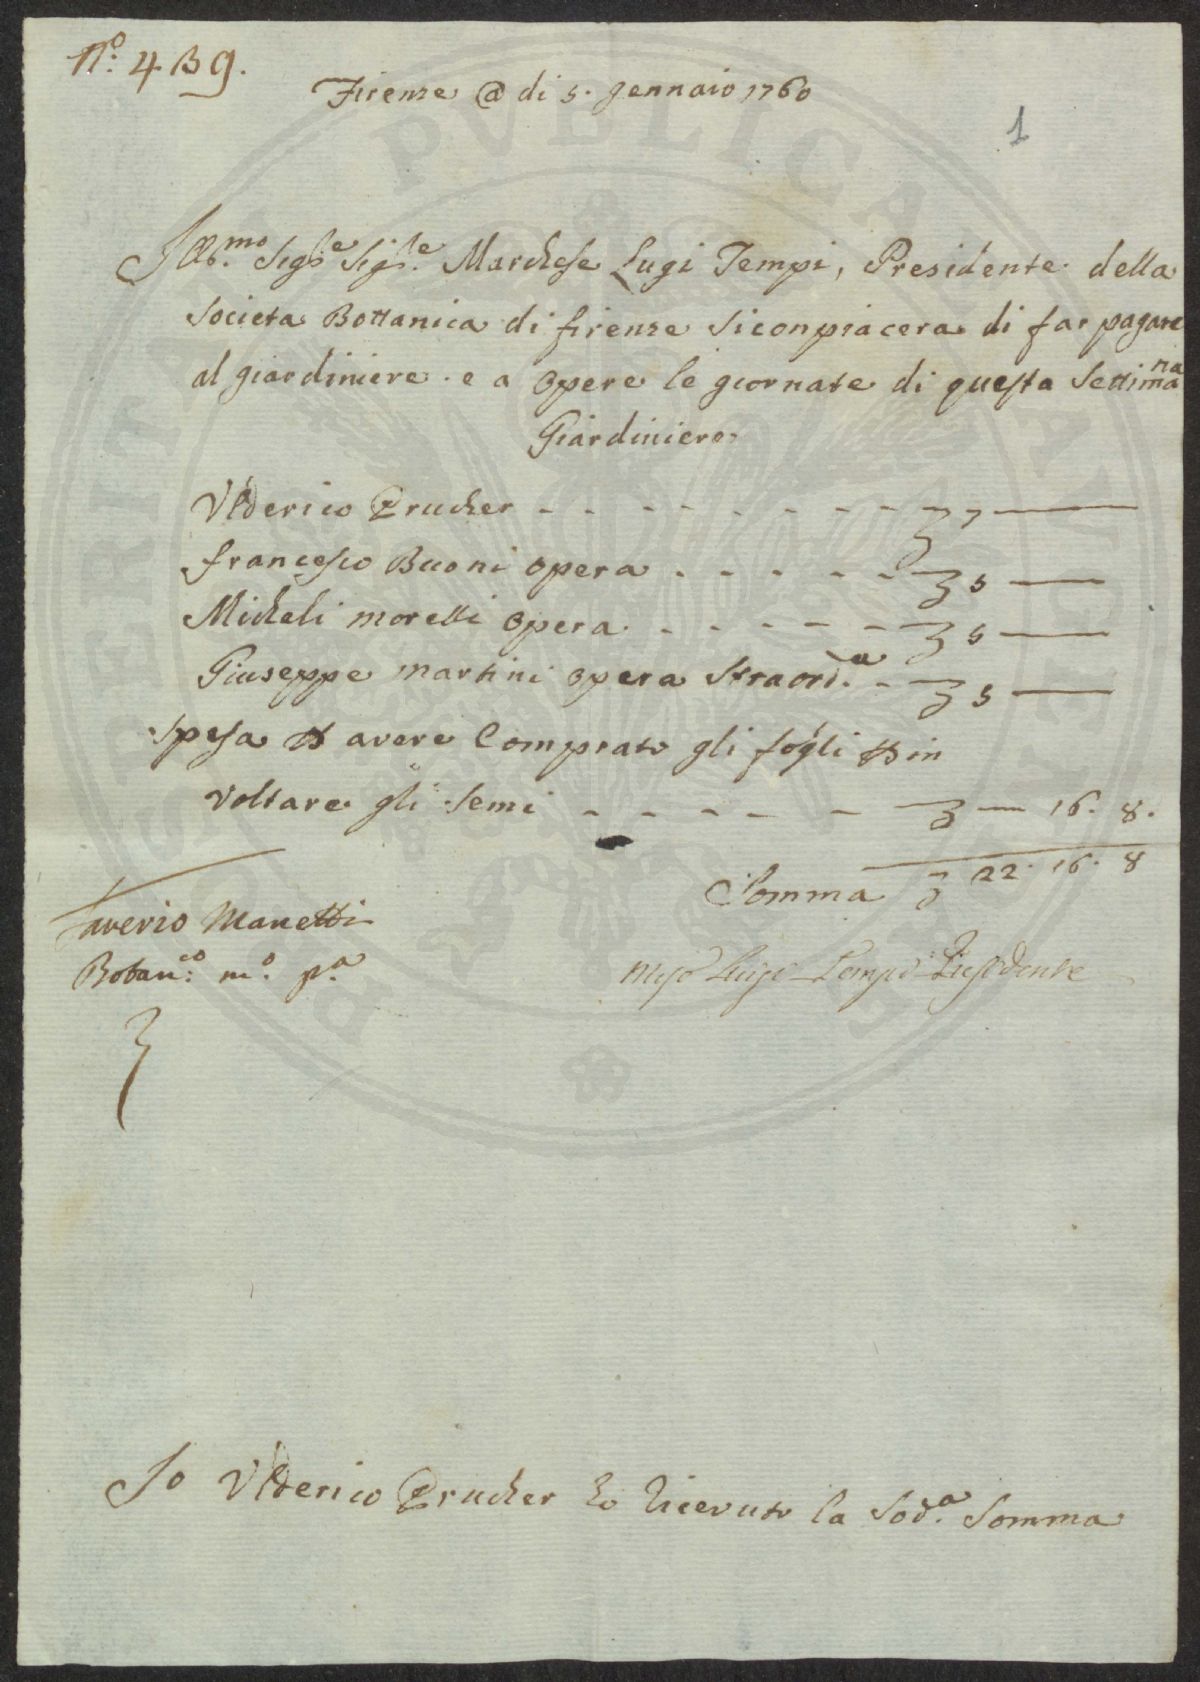 N.º 439.
Firenze @ di 5. gennaio 1760
1
Ill.mo Sig.re Sig.re Marchese Lugi Tempi, Presidente della
Societa Bottanica di firenze si conpiacera di far pagare
al giardiniere. e a opere le giornate di questa Settimana
Giardiniere
Ulderico Prucher - - - - - - - - 7 —
francesco Buoni opera - - - - - 5 —
Micheli morelli opera - - - - - 5 —
Giuseppe martini opera straord.a - 5 —
spesa avere Comprato gli fogli in
voltare gli semi - - - - - — 16. 8.
Somma 22. 16. 8
Saverio Manetti
Botan.co m.o p.a
Luigi Tempi Presidente
Io Ulderico Prucher ho riceuto la Sod.a Somma
PUBLICA